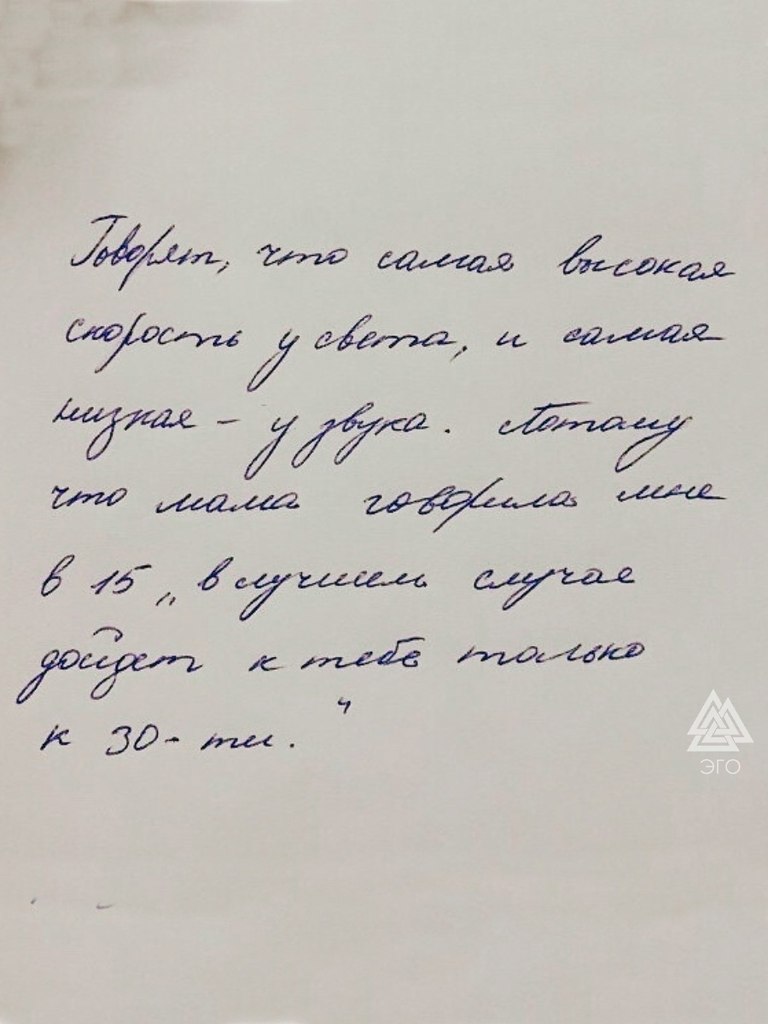 Говорят, что самая высокая
скорость у света, и самая
низкая - у звука. Потому
что мама говорила мне
в 15 „в лучшем случае
дойдет к тебе только
к 30-ти."
ЭГО